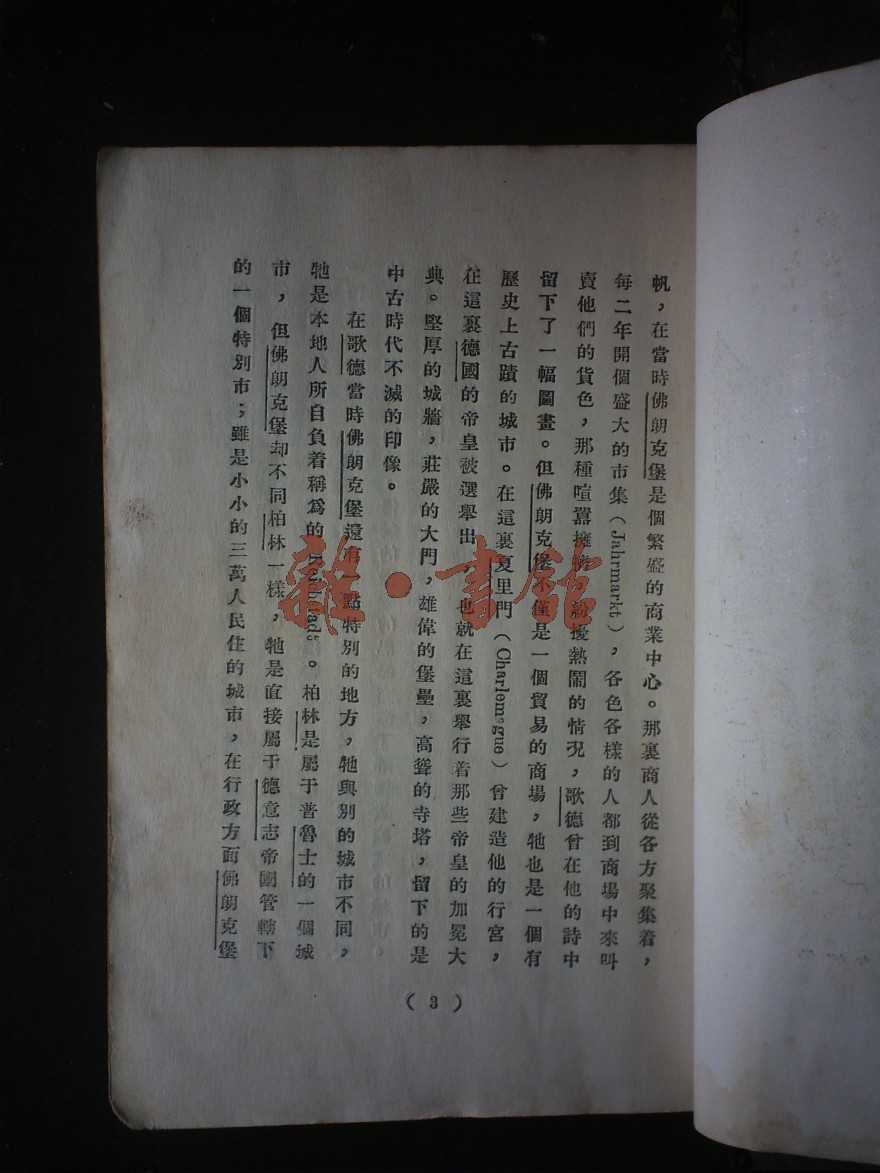 帆，在當時佛朗克堡是個繁盛的商業中心。那裏商人從各方聚集着，
每二年開個盛大的市集（Jahrmarkt），各色各樣的人都到商場中來叫
賣他們的貨色，那種喧囂擁擠，紛擾熱鬧的情况，歌德曾在他的詩中
留下了一幅圖畫。但佛朗克堡不僅是一個貿易的商場，牠也是一個有
歷史上古蹟的城市。在這裏夏里門（Charlemagne）曾建造他的行宮，
在這裏德國的帝皇被選舉出，也就在這裏舉行着那些帝皇的加冕大
典。堅厚的城牆，莊嚴的大門，雄偉的堡壘，高聳的寺塔，留下的是
中古時代不滅的印像。
在歌德當時佛朗克堡還有一點特別的地方，牠與別的城市不同，
牠是本地人所自負着稱爲的。柏林是屬于普魯士的一個城
市，但佛朗克堡却不同柏林一樣，牠是直接屬于德意志帝國管轄下
的一個特別市；雖是小小的三萬人民住的城市，在行政方面佛朗克堡
（3）
雜·書館